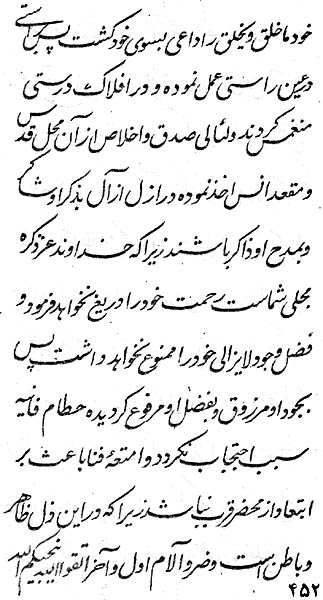 خود ما خلق و یخلق را داعی بسوی خود گشت پس براستی
در عین راستی عمل نموده و در افلاک درستی
منغمس کردند و لئالی صدق و اخلاص از آن محل قدس
و مقعد انس اخذ نموده در ازل ازآل بذکر او شاکر
و بمدح او ذاکر باشند زیرا که خداوند عز ذکره
مجلی شماست رحمت خود را دریغ نخواهد فرمود و
فضل وجود لایزالی خود را ممنوع نخواهد داشت پس
بجود او مرزوق و بفضل او مرفوع گردیده حطام فانیه
سبب احتجاب نگردد و امتعهٔ فنا باعث بر
ابتعاد از محضر قرب نباشد زیرا که در این ذل ظاهر
و باطن است و ضر و آلام اول و آخر اتقوا الله ینجیکم الله
۴۵۲